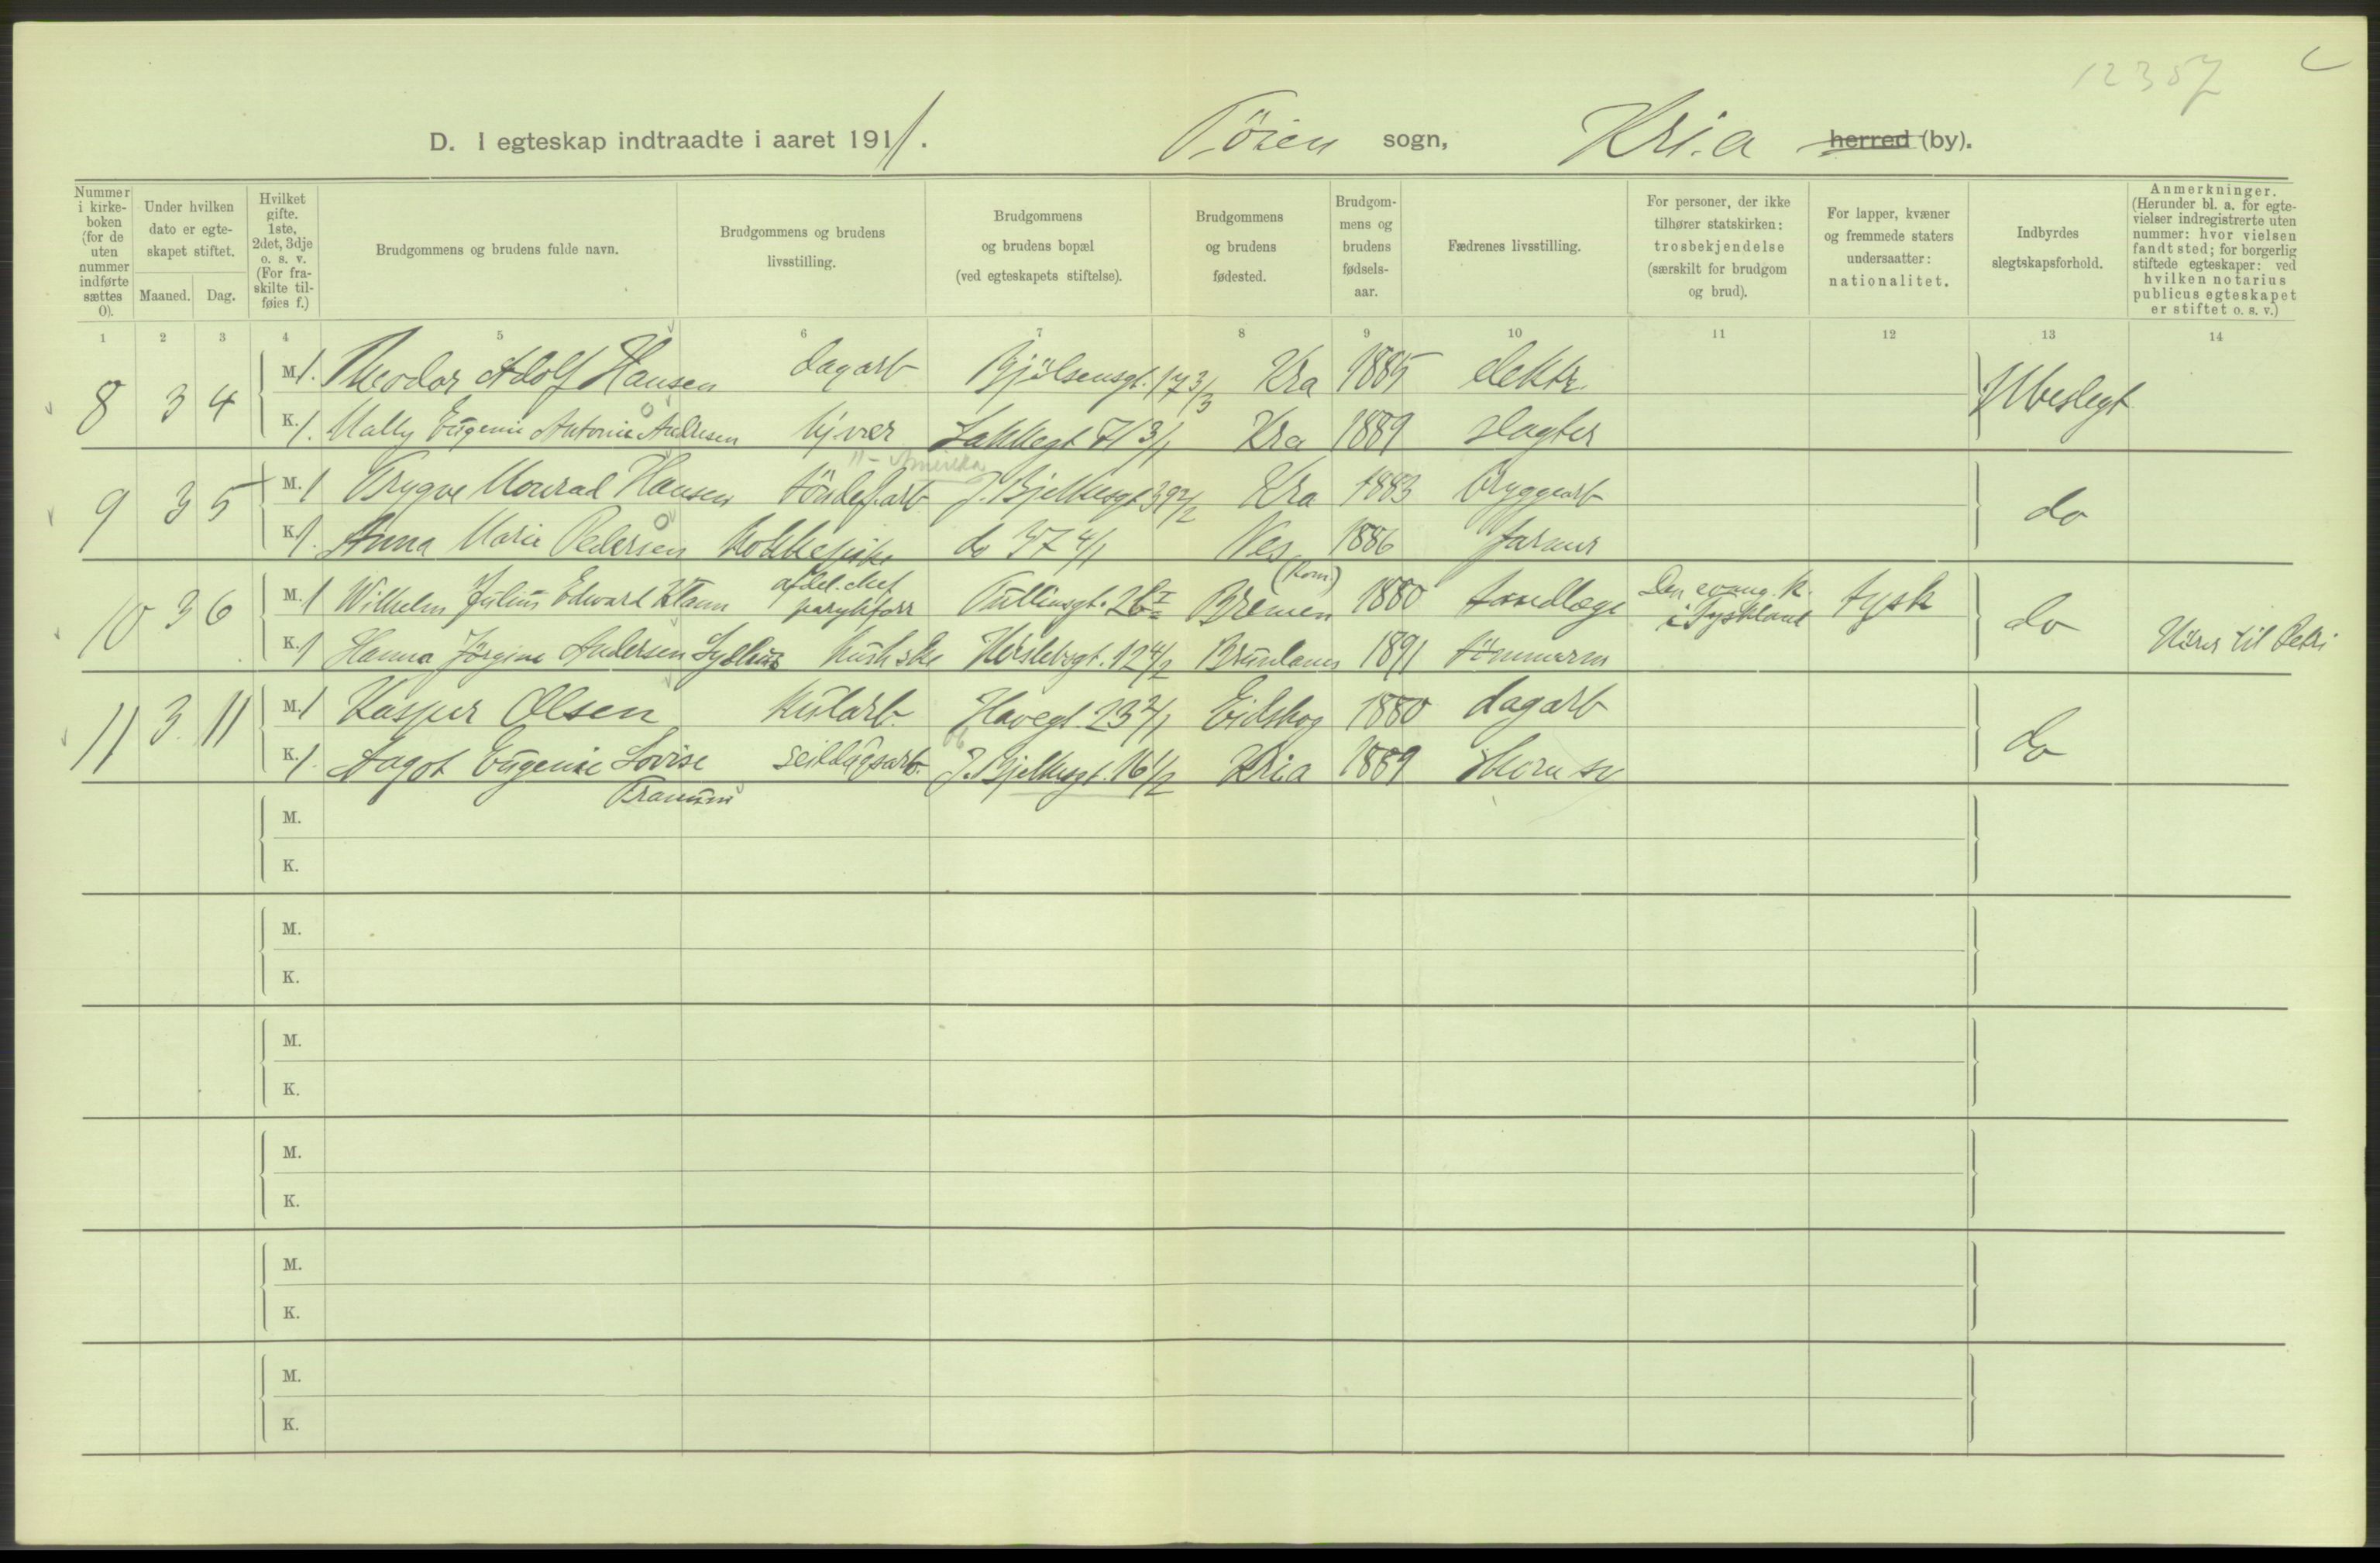 12357
D. I egteskap indtraadte i aaret 1911. Tøien sogn, Kri.a herred (by).
Nummer i kirke-boken (for de uten nummer indførte sættes 0).
Under hvilken dato er egte-skapet stiftet.
Maaned. Dag.
Hvilket gifte. 1ste, 2det, 3dje o. s. v. (For fra-skilte til-føies f.)
Brudgommens og brudens fulde navn.
Brudgommens og brudens livsstilling.
Brudgommens og brudens bopæl (ved egteskapets stiftelse).
Brudgommens og brudens fødested.
Brudgom-mens og brudens fødsels-aar.
Fædrenes livsstilling.
For personer, der ikke tilhører statskirken: trosbekjendelse (særskilt for brudgom og brud).
For lapper, kvæner og fremmede staters undersaatter: nationalitet.
Indbyrdes slegtskapsforhold.
Anmerkninger. (Herunder bl. a. for egte-vielser indregistrerte uten nummer: hvor vielsen fandt sted; for borgerlig stiftede egteskaper: ved hvilken notarius publicus egteskapet er stiftet o. s. v.)
1 2 3 4 5 6 7 8 9 10 11 12 13 14
8 3 4 M. 1. Theodor Adolf Hansen dagarb Bjølsensgt. 17 3/3 Kra 1885 elektr. Ubeslegt
K. 1. Mally Eugenie Antonie Andresen hj. vær Lakkegt 71 3/1 Kra 1889 slagter
" - Amerika
9 3 5 M. 1 Trygve Monrad Hansen tøndefarb J. Bjelkesgt 39 2/2 Kra 1883 Bryggearb do
K. 1. Anna Marie Pedersen Kokkepike do 37 4/1 Nes (Rom.) 1886 farmer
10 3 6 M. 1 Wilhelm Julius Edward Klann afdel. chef parykforr Tullinsgt. 26 I Bremen 1880 tandlæge Den evang. k. i Tyskland tysk do Hører til Petri
K. 1 Hanna Jørgine Andersen Syslius Kunstske Herslebsgt. 12 4/2 Brunlanes 1891 tømmerm
11 3 11 M. 1 Kasper Olsen Kularb. Havegt. 23 2/1 Eidskog 1880 dagarb do
K. 1. Aagot Eugenie Lovise seildugsarb. J. Bjelkesgt. 16 1/2 Kri.a 1889 Skom sv
Tranum
M.
K.
M.
K.
M.
K.
M.
K.
M.
K.
M.
K.